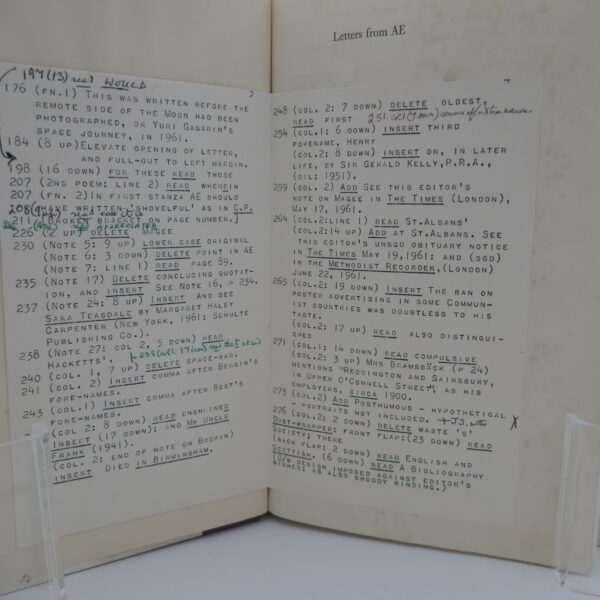 197(13) read WOULD
3
176 (FN.1) THIS WAS WRITTEN BEFORE THE
REMOTE SIDE OF THE MOON HAD BEEN
PHOTOGRAPHED, OR YURI GAGARIN'S
SPACE JOURNEY, IN 1961.
184 (8 UP)ELEVATE OPENING OF LETTER,
AND FULL-OUT TO LEFT MARGIN.
198 (16 DOWN) FOR THESE READ THOSE
207 (2ND POEM: LINE 2) READ WHEREIN
207 (FN. 2)IN FIRST STANZA AE SHOULD
HAVE WRITTEN 'SHOVELFUL' AS IN C.P.
211 (BROKEN BRACKET ON PAGE NUMBER.]
226 (2 UP) DELETE MAGEE
230 (NOTE 5: 9 UP) LOWER CASE ORIGINAL
(NOTE 6: 3 DOWN) DELETE POINT IN AE
(NOTE 7: LINE 1) READ PAGE 89.
235 (NOTE 17) DELETE CONCLUDING QUOTAT-
ION, AND INSERT SEE NOTE 16, P 234.
237 (NOTE 24: 8 UP) INSERT AND SEE
SARA TEASDALE BY MARGARET HALEY
CARPENTER (NEW YORK, 1961: SCHULTE
PUBLISHING CO.).
238 (NOTE 27: COL 2, 5 DOWN) READ
HACKETTS'.
240 (COL. 1, 7 UP) DELETE SPACE-BAR.
241 (COL. 2) INSERT COMMA AFTER BERGIN'S
FORE-NAMES.
243 (COL.1) INSERT COMMA AFTER BEST'S
FORE-NAMES.
(COL. 2: 8 DOWN) READ ENSHRINED
INSERT (17 DOWN): AND MY UNCLE
FRANK (1941).
(COL. 2: END OF NOTE ON BODKIN)
INSERT DIED IN BIRMINGHAM,
Letters from AE
4
248 (COL. 2: 7 DOWN) DELETE OLDEST,
READ FIRST
254 (COL.1: 6 DOWN) INSERT THIRD
FORENAME, HENRY
(COL.2: 8 DOWN) INSERT OR, IN LATER
LIFE, BY SIR GERALD KELLY,P.R.A.,
(OIL: 1951).
259 (COL. 2) ADD SEE THIS EDITOR'S
NOTE ON MAGEE IN THE TIMES (LONDON),
MAY 17, 1961.
264 (COL.2:LINE 1) READ ST.ALBANS'
(COL.2:14 UP) ADD AT ST.ALBANS. SEE
THIS EDITOR'S UNSGD OBITUARY NOTICE
IN THE TIMES MAY 19,1961: AND (SGD)
IN THE METHODIST RECORDER,(LONDON)
JUNE 22, 1961.
265 (COL.2: 19 DOWN) INSERT THE BAN ON
POSTER ADVERTISING IN SOME COMMUN-
IST COUNTRIES WAS DOUBTLESS TO HIS
TASTE.
(COL.2: 17 UP) READ ALSO DISTINGUI-
SHED
271 (COL.1: 14 DOWN) READ COMPULSIVE
(COL.2: 3 UP) MRS BRAMSBÄCK (P 24)
MENTIONS "REDDINGTON AND SAINSBURY,
IN UPPER O'CONNELL STREET", AS HIS
EMPLOYERS, CIRCA 1900.
273 (COL.2) ADD POSTHUMOUS - HYPOTHETICAL
- PORTRAITS NOT INCLUDED.
276 (COL.2: 2 DOWN) DELETE WASTE 'S'.
DUST-WRAPPER: FRONT FLAP:(23 DOWN) READ
SOCIETY; THERE
(BACK FLAP: 2 DOWN) READ ENGLISH AND
SCOTTISH. (6 DOWN) READ A BIBLIOGRAPHY
(D/W DESIGN IMPOSED AGAINST EDITOR'S
WISHES: AS ALSO SHODDY BINDING.)